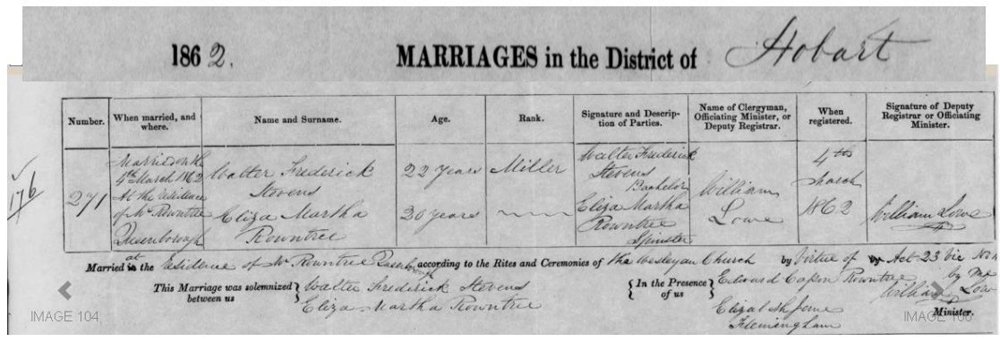 1862. MARRIAGES in the District of Hobart
Number. When married, and where. Name and Surname. Age. Rank. Signature and Description of Parties. Name of Clergyman, Officiating Minister, or Deputy Registrar. When registered. Signature of Deputy Registrar or Officiating Minister.
176
271
Married on the
4th March 1862
At the residence
of Mr Rowntree
Queenborough
Walter Frederick
Stevens
Eliza Martha
Rowntree
22 years
30 years
Miller
Walter Frederick
Stevens
Bachelor
Eliza Martha
Rowntree
Spinster
William
Lowe
4th
March
1862
William Lowe
Married at the residence of Mr Rowntree according to the Rites and Ceremonies of the Wesleyan Church by Virtue of Act 23 Vic No
by me
This Marriage was solemnized between us
Walter Frederick Stevens
Eliza Martha Rowntree
In the Presence of us
Edward Rowntree
Elizabeth Jane
Flemingham
William Low
Minister.
IMAGE 104